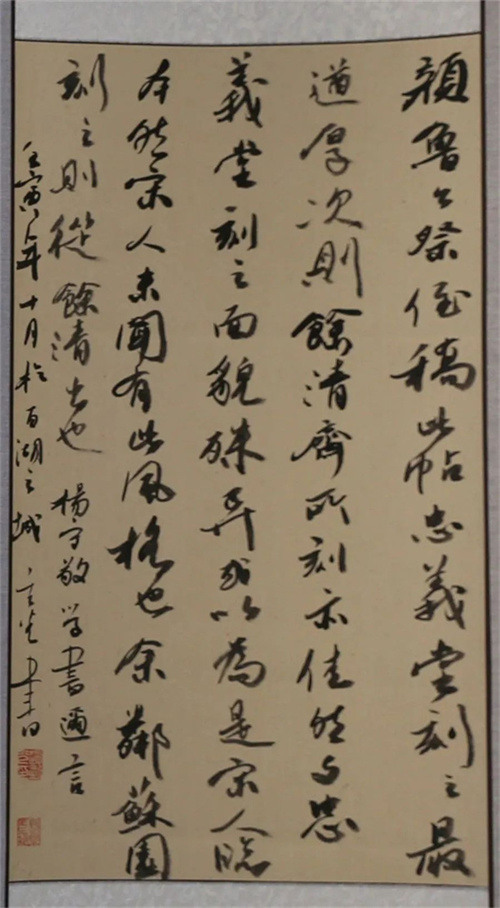 顔魯公祭侄稿此帖忠義堂刻之最
遒厚次則餘清齋所刻亦佳然与忠
義堂刻之面貌殊异或以為是宋人臨
本然宋人未聞有此風格也余鄰蘇園
刻之則從餘清出也 楊守敬学書邇言
壬寅年十月於百湖之城 書